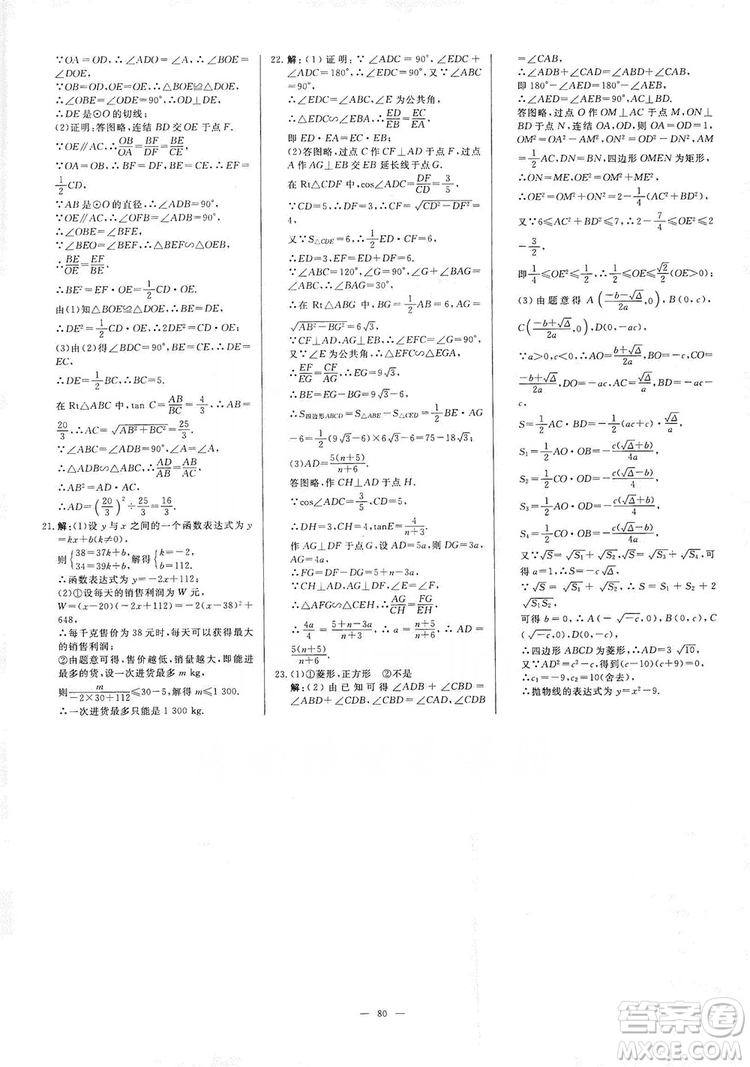 ∵OA=OD,∴∠ADO=∠A,∴∠BOE=
∠DOE.
∵OB=OD,OE=OE,∴△BOE≌△DOE,
∴∠OBE=∠ODE=90°,∴OD⊥DE,
∴DE是⊙O的切线;
(2)证明:答图略,连结BD交OE于点F.
∵OE∥AC,∴OB/OA=BF/DF=BE/CE.
∵OA=OB,∴BF=DF,BE=CE,∴EF=
1/2CD.
∵AB是⊙O的直径,∴∠ADB=90°,
∴∠OBE=∠OFB=∠BFE.
∵∠BEO=∠BEF,∴△BEF∽△OEB,
∴BE/OE=EF/BE,
∴BE²=EF·OE=1/2CD·OE.
由(1)知△BOE≌△DOE,∴DE=BE,
∴DE²=1/2CD·OE,∴2DE²=CD·OE;
(3)由(2)得∠BDC=90°,BE=CE,∴DE=
EC,
∴DE=1/2BC,∴BC=5.
在Rt△ABC中,tan C=AB/BC=4/3,∴AB=
20/3,∴AC=√(AB²+BC²)=25/3.
∵∠ADB=∠ABC=90°,∠A=∠A,
∴△ADB∽△ABC,∴AD/AB=AB/AC,
∴AB²=AD·AC,
∴AD=(20/3)²÷25/3=16/3.
21.解:(1)设y与x之间的一个函数表达式为y
=kx+b(k≠0),
则{38=37k+b, 34=39k+b,解得{k=-2, b=112,
∴函数表达式为y=-2x+112;
(2)①设每天的销售利润为W元,
W=(x-20)(-2x+112)=-2(x-38)²+
648,
∴每千克售价为38元时,每天可以获得最大
的销售利润;
②由题意可得,售价越低,销量越大,即能进
最多的货,设一次进货最多m kg,
则m/(-2×30+112)≤30-5,解得m≤1 300.
∴一次进货最多只能是1 300 kg.
22.解:(1)证明:∵∠ADC=90°,∠EDC+
∠ADC=180°,∴∠EDC=90°,又∵∠ABC=
90°,
∴∠EDC=∠ABC,∠E为公共角,
∴△EDC∽△EBA,∴ED/EB=EC/EA,
即ED·EA=EC·EB;
(2)答图略,过点C作CF⊥AD于点F,过点
A作AG⊥EB交EB延长线于点G.
在Rt△CDF中,cos∠ADC=DF/CD=3/5,
∵CD=5,∴DF=3,∴CF=√(CD²-DF²)=
4,
又∵S△CDE=6,∴1/2ED·CF=6,
∴ED=3,EF=ED+DF=6.
∵∠ABC=120°,∠G=90°,∠G+∠BAG=
∠ABC,∴∠BAG=30°.
∴在Rt△ABG中,BG=1/2AB=6,AG=
√(AB²-BG²)=6√3,
∵CF⊥AD,AG⊥EB,∴∠EFC=∠G=90°,
又∵∠E为公共角,∴△EFC∽△EGA,
∴EF/EG=CF/AG,∴EG=9√3,
∴BE=EG-BG=9√3-6,
∴S四边形ABCD=S△ABE-S△CED=1/2BE·AG
-6=1/2(9√3-6)×6√3-6=75-18√3;
(3)AD=5(n+5)/(n+6).
答图略,作CH⊥AD于点H.
∵cos∠ADC=3/5,
∴DH=3,CH=4,∴tanE=4/(n+3).
作AG⊥DF于点G,设AD=5a,则DG=3a,
AG=4a,
∴FG=DF-DG=5+n-3a,
∵CH⊥AD,AG⊥DF,∠E=∠F,
∴△AFG∽△CEH,∴AG/CH=FG/EH,
∴4a/4=(5+n-3a)/(n+3),∴a=(n+5)/(n+6),∴AD=5a=
5(n+5)/(n+6).
23.(1)①菱形,正方形 ②不是
解:(2)由已知可得∠ADB+∠CBD=
∠ABD+∠CDB,∠CBD=∠CAD,∠CDB
=∠CAB,
∴∠ADB+∠CAD=∠ABD+∠CAB,
即180°-∠AED=180°-∠AEB,
∴∠AED=∠AEB=90°,AC⊥BD.
答图略,过点O作OM⊥AC于点M,ON⊥
BD于点N,连结OA,OD,∴OA=OD=1,
OM²=OA²-AM²,ON²=OD²-DN²,AM
=1/2AC,DN=1/2BD,四边形OMEN为矩形,
∴ON=ME,OE²=OM²+ME²,
∴OE²=OM²+ON²=2-1/4(AC²+BD²),
又∵6≤AC²+BD²≤7,∴2-7/4≤OE²≤2-
3/2,
即1/4≤OE²≤1/2,∴1/2≤OE≤√2/2;
(3)由题意得A((-b-√Δ)/2a,0),B(0,c),
C((-b+√Δ)/2a,0),D(0,-ac).
∵a>0,c<0,∴AO=(b+√Δ)/2a,BO=-c,CO=
(√Δ-b)/2a,DO=-ac,AC=√Δ/a,BD=-ac-c,
S=1/2AC·BD=-1/2(ac+c)·√Δ/a,
S₁=1/2AO·BO=-c(√Δ+b)/4a,
S₂=1/2CO·DO=-c(√Δ-b)/4,
S₃=1/2AO·DO=-c(√Δ+b)/4,
S₄=1/2CO·BO=-c(√Δ-b)/4a,
又∵√S=√S₁+√S₂,√S=√S₃+√S₄,可
得a=1.
∴S=-c√Δ,S₁=-c(√Δ+b)/4,S₂=-c(√Δ-b)/4,
∵√S=√S₁+√S₂,∴S=S₁+S₂+2
√(S₁S₂),
可得b=0,∴A(-√-c,0),B(0,c),C
(√-c,0),D(0,-c),
∴四边形ABCD为菱形,
又∵AD=3√10,∴(-c)+c²=90,
∴c²-c-90=0,得到(c-10)(c+9)=0.
∴c₁=-9,c₂=10(舍去),
∴抛物线的表达式为y=x²-9.
— 80 —
答案圈
MXQE.COM